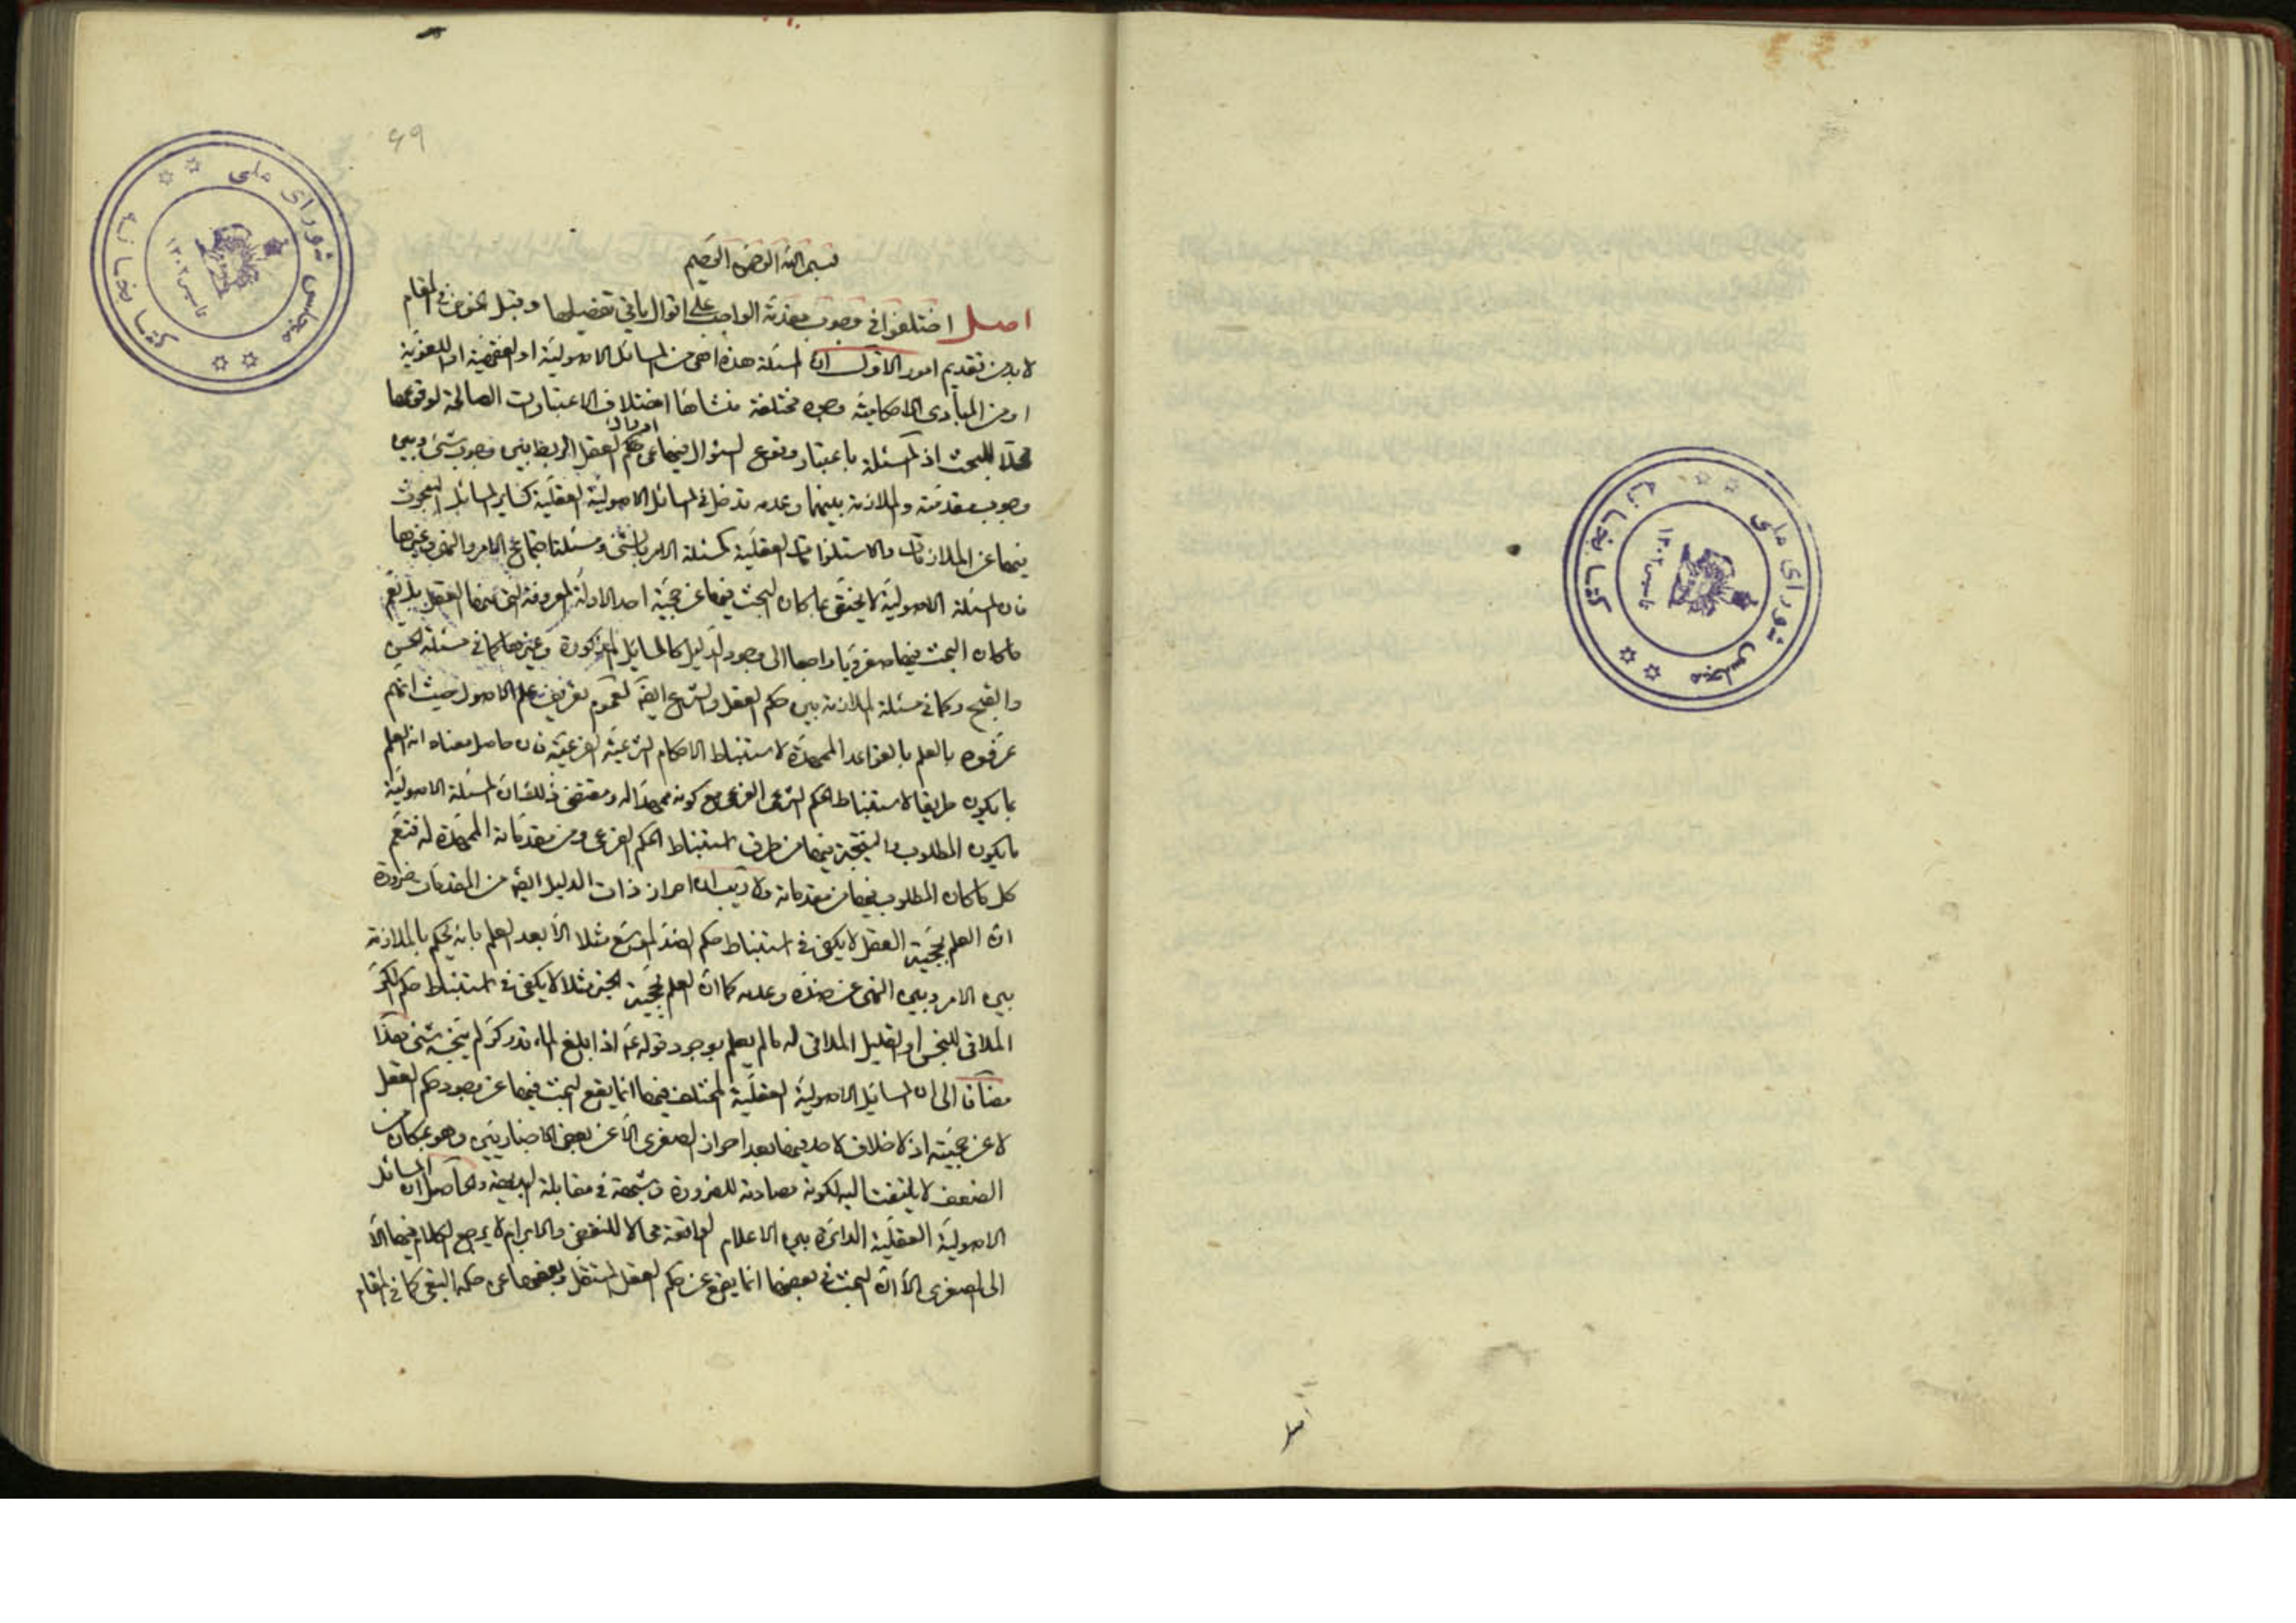 ۶۹
بسم الله الرحمن الرحيم
اصل اختلفوا في وجوب مقدمة الواجب على اقوال ياتي تفصيلها وقبل الخوض في المقام
لا بد من تقديم امور الاول ان المسئلة هذه اهي من المسائل الاصولية او الفقهية او اللغوية
او من المبادى الاحكامية وجوه مختلفة منشاها اختلاف الاعتبارات الصالحة لوقوعها
محلا للبحث اذ المسئلة باعتبار وقوع السؤال فيها عن حكم العقل الربط بين وجوب شئ وبين
وجوب مقدمته والملازمة بينهما وعدمه تدخل في المسائل الاصولية العقلية كساير المسائل المبحوث
فيها عن الملازمات والاستلزامات العقلية كمسئلة الامر بالشئ ومسئلة اجتماع الامر والنهى وغيرها
فان المسئلة الاصولية لا يختص بما كان البحث فيها عن حجية احد الادلة المعروفة التي منها العقل بل تعم
ما كان البحث فيها صغرويا راجعا الى وجود الدليل كالمسايل المذكورة وغيرها كما في مسئلة الحسن
والقبح وكما في مسئلة الملازمة بين حكم العقل والشرع ايضا لعموم تعريف علم الاصول حيث انهم
عرفوه بالعلم بالقواعد الممهدة لاستنباط الاحكام الشرعية الفرعية فان حاصل معناه انه العلم
بما يكون طريقا لاستنباط الحكم الشرعى الفرعى مع كونه ممهدا له ومقتضى ذلك ان المسئلة الاصولية
ما يكون المطلوب والنتيجة فيها من طرق استنباط الحكم الفرعى ومن مقدماته الممهدة له فتعم
كل ما كان المطلوب فيها من مقدماته ولا ريب ان احراز ذات الدليل ايضا من المقدمات ضرورة
ان العلم بحجية العقل لا يكفى في استنباط حكم الضد الموسع مثلا الا بعد العلم بانه يحكم بالملازمة
بين الامر وبين النهى عن ضده وعدمه كما ان العلم بحجية الخبر مثلا لا يكفى في استنباط حكم الكر
الملاقى للنجس او القليل الملاقى له ما لم يعلم بوجود قوله ع اذا بلغ الماء قدر كر لم ينجسه شئ هذا
مضافا الى ان المسايل الاصولية العقلية المختلف فيها انما يقع البحث فيها عن وجود حكم العقل
لا عن حجيته اذ لا خلاف لاحد فيها بعد احراز الصغرى الا عن بعض الاخباريين وهو بمكان من
الضعف لا يلتفت اليه لكونه مصادمة للضرورة وشبهة في مقابلة البديهة والحاصل ان المسائل
الاصولية العقلية الدائرة بين الاعلام الواقعة محالا للنقض والابرام لا يرجع الكلام فيها الا
الى الصغرى الا ان البحث في بعضها انما يقع عن حكم العقل المستقل وبعضها عن حكمه التبعى كما في المقام
اصل
كتابخانه مجلس شوراى ملى
تاسيس ۱۳۰۲
كتابخانه مجلس شوراى ملى
تاسيس ۱۳۰۲